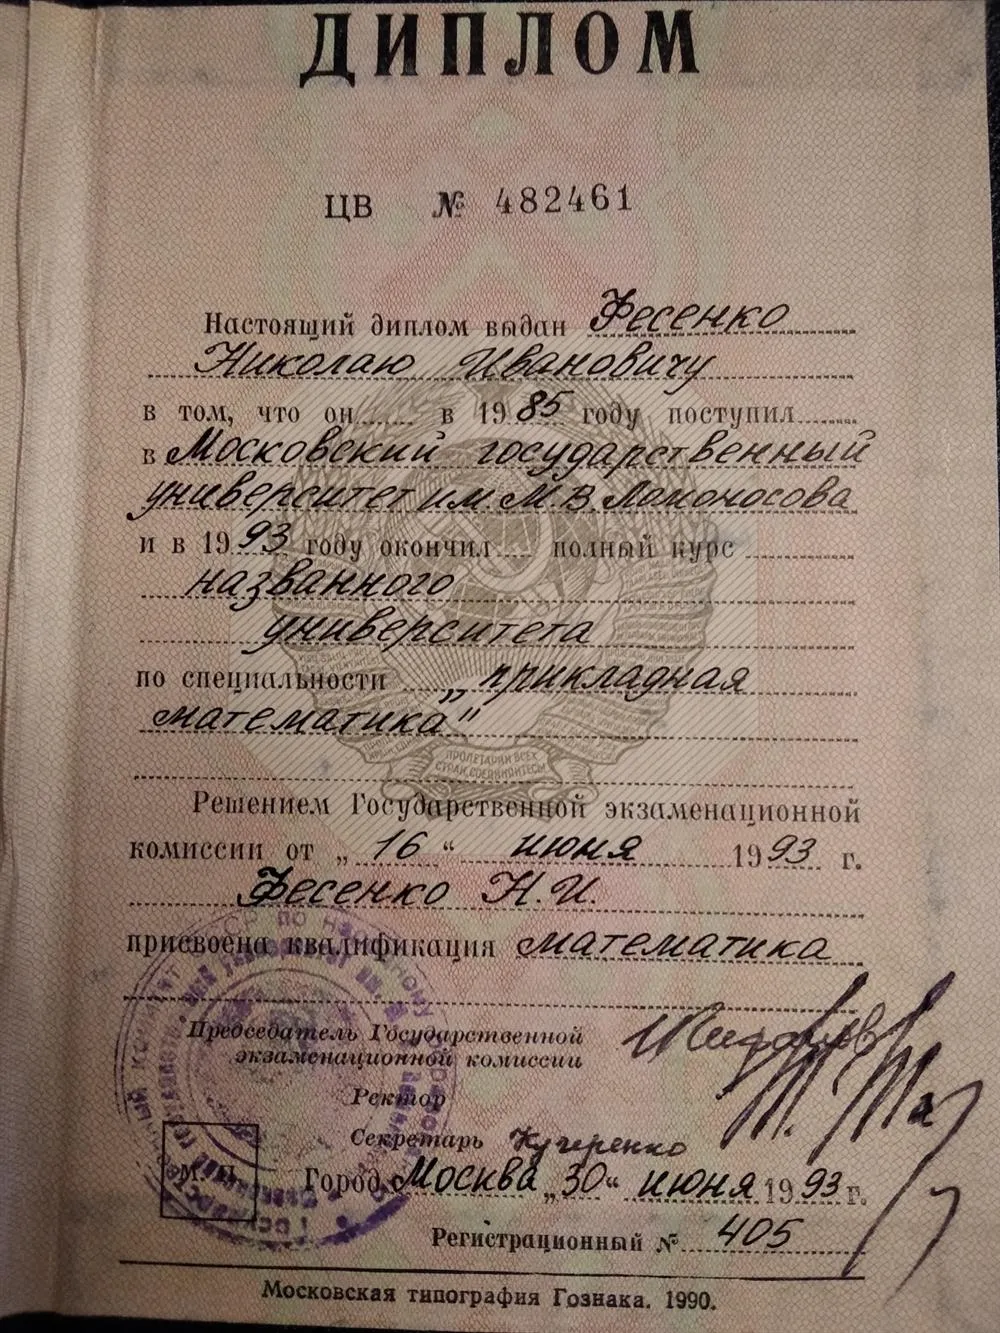 ДИПЛОМ
ЦВ № 482461
Настоящий диплом выдан Фесенко
Николаю Ивановичу
в том, что он в 1985 году поступил
в Московский государственный
университет им. М.В. Ломоносова
и в 1993 году окончил полный курс
названного
университета
по специальности „прикладная
математика"
ПРОЛЕТАРИИ ВСЕХ
СТРАН, СОЕДИНЯЙТЕСЬ!
Решением Государственной экзаменационной
комиссии от „16" июня 1993 г.
Фесенко Н.И.
присвоена квалификация математика
Председатель Государственной
экзаменационной комиссии
Ректор
Секретарь Кучеренко
М. П. Город Москва „30" июня 1993 г.
Регистрационный № 405
Московская типография Гознака. 1990.